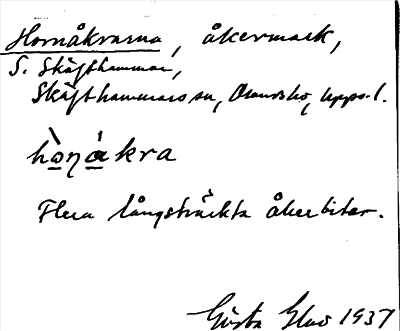 Hornåkrarna, åkermark,
S. Skäfthammar,
Skäfthammars sn, Olands hd, Upps. l.
hòṇákra
Flera långsträckta åkerbitar.
Gösta Elas 1937